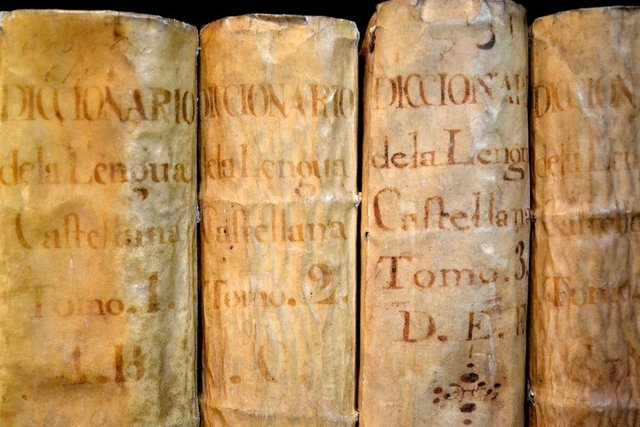 DICCIONARIO
dela Lengua
Castellana
Tomo.1.
A.B
DICCIONARIO
da Lengua
Castellana
Tomo.2.
.C.
DICCIONAR
dela Lengu
Castellana
Tomo.3.
D.E.
DICCION
dela Len
Castella
Tomo